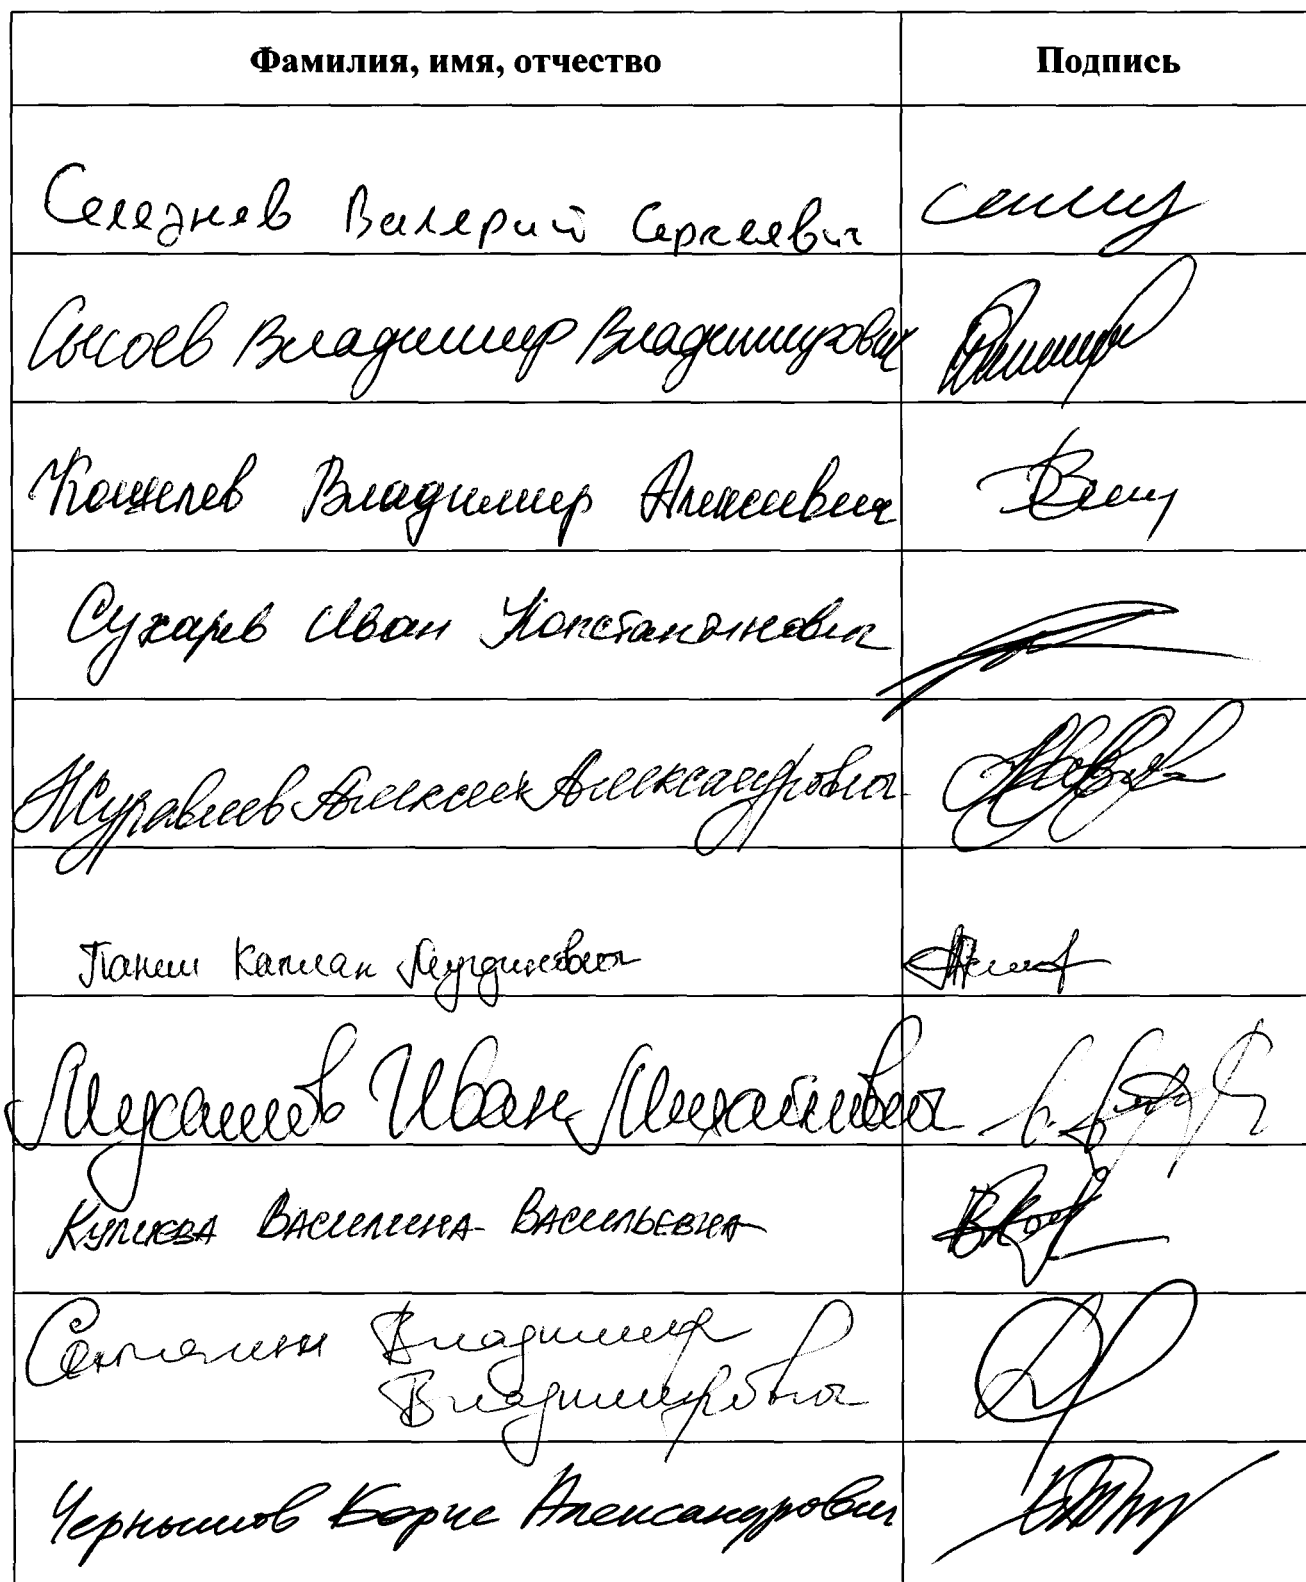 Фамилия, имя, отчество Подпись
Селезнев Валерий Сергеевич
Сысоев Владимир Владимирович
Кошелев Владимир Алексеевич
Сухарев Иван Константинович
Журавлев Алексей Александрович
Панеш Каплан Мугдинович
Мусатов Иван Михайлович
Куликова Василина Васильевна
Сипягин Владимир
Владимирович
Чернышов Борис Александрович